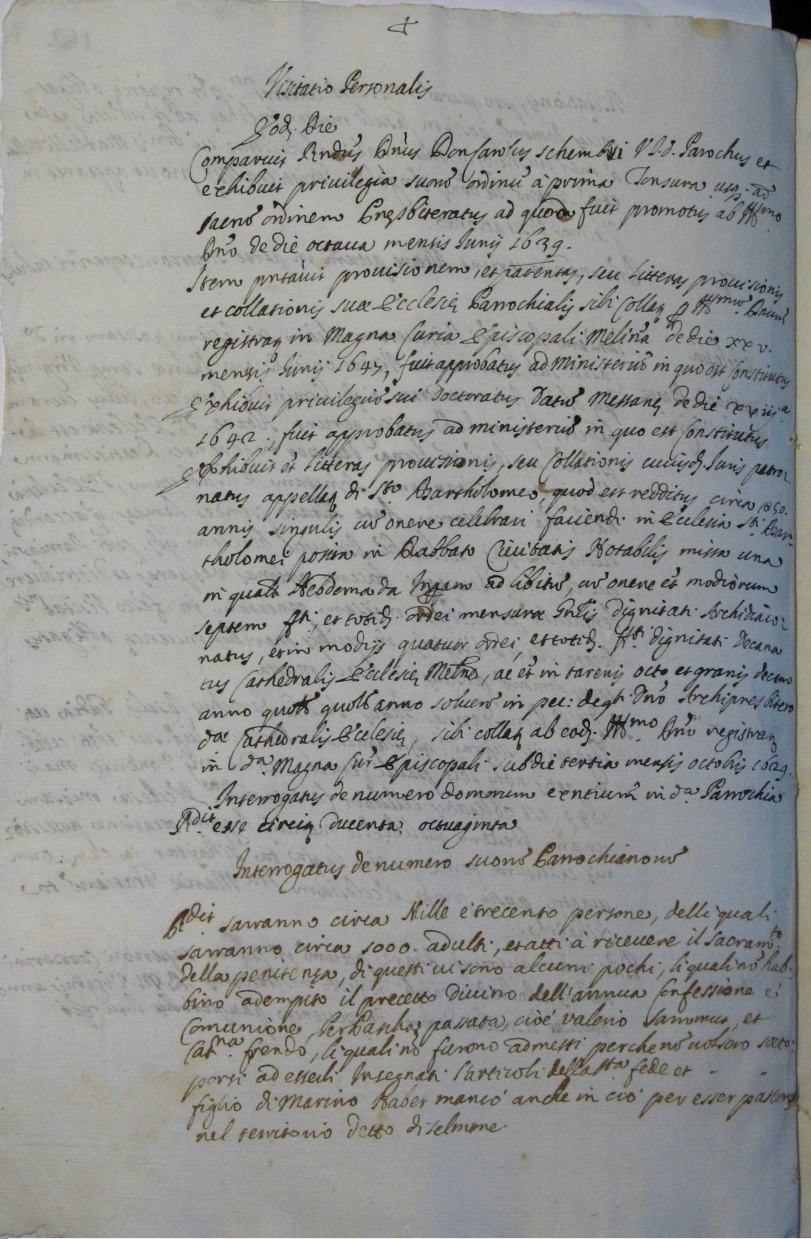 Visitatio Personalis
Eod. Die
Comparuit Rndus Dnus Don Carolus schembri V.I.D. Parochus et
exhibuit privilegia suorū ordinū à prima Tonsura usq. ad
sacrū ordinem Presbiteratus ad quem fuit promotus ab Illmo
Dno de die octava mensis Iunij 1639.
Item pntavit provisionem, et patentes, seu litteras provisionis
et collationis suae Ecclesiae Parrochialis sibi collat
registrat in Magna Curia Episcopali Melita de die xxv.
mensis Iunij 1647, fuit approbatus ad Ministeriū in quo est Constitutus
Exhibuit privilegiū sui Doctoratus Datum Messanę de die
1642. fuit approbatus ad ministeriū in quo est Constitutus
Exhibuit et litteras provisionis, seu Collationis cuiusd. Iuris patro=
natus appellat di Sto Bartholomeo, quod est redditus circa
annis singulis cū onere celebrari faciendi in Ecclesia Sti Bar
tholomei posita in Rabbato Civitatis Notabilis missa una
in qualt Hebdomada ad libitū, cū onere et modiorum
septem et totid. ordei mensurae dignitati Archidiaco=
natus, et in modijs quatuor ordei, et totid. dignitati Decana
tus Cathedralis Ecclesię Meltae, ac et in tarenis octo et granis decem
anno quolt solvere in pec: Dno Archipresbitero
dae Cathedralis Ecclesię, sibi collat ab eod. Illmo Dno registrat
in da Magna Cur Episcopali sub die tertia mensis octobris
Interrogatus de numero domorum in da Parrochia
Rdit esse circiter ducenta octuaginta
Interrogatus de numero suorū Parrochianorū
Rdit saranno circa Mille e trecento persone, delli quali
saranno circa 1000. adulti, et atti à ricevere il Sacramto
della penitenza, di questi vi sono alcuni pochi, li quali nō hab=
bino adempito il precetto Divino dell'annua Confessione e
Comunione, passata, cioè Valerio Sammut, et
Catna frendo, li quali nō furono admessi perche nō sotto=
porsi ad esserli Insegnati l'articoli della sta fede et
figlio di Marino Xaber mancò anche in ciò per esser
nel territorio detto di selmone